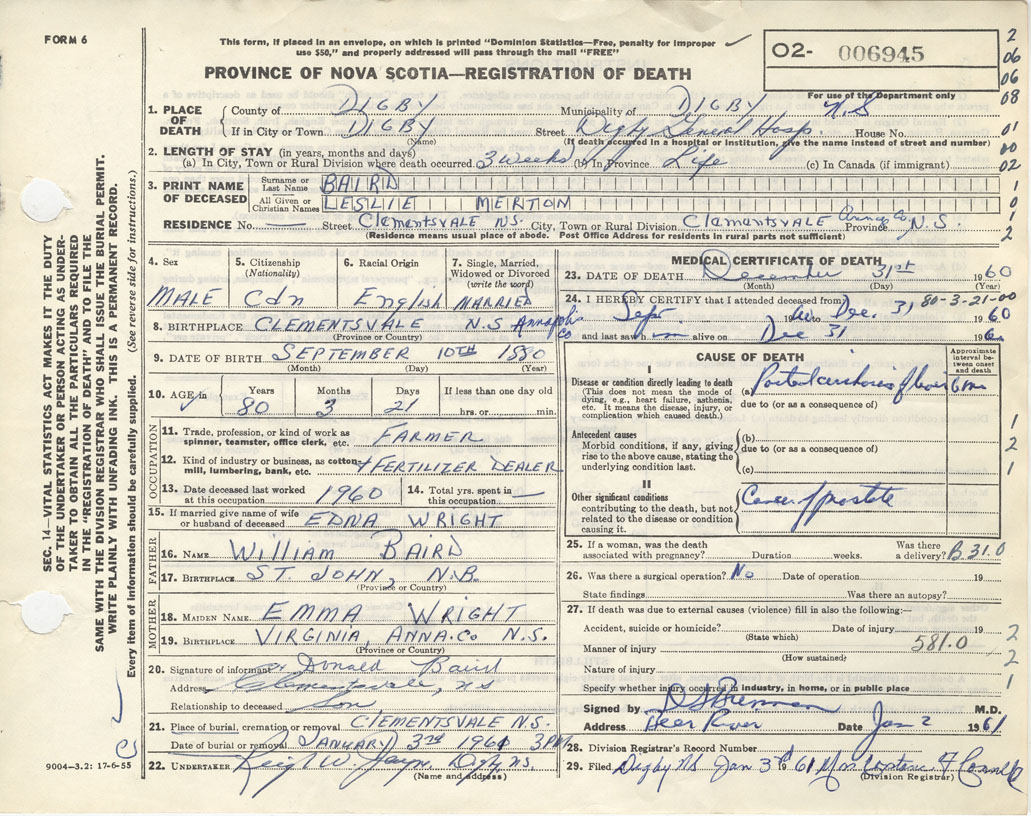 FORM 6
This form, if placed in an envelope, on which is printed "Dominion Statistics—Free, penalty for improper
use $50," and properly addressed will pass through the mail "FREE"
O2- 006945
PROVINCE OF NOVA SCOTIA—REGISTRATION OF DEATH
For use of the Department only
2
06
06
08
1. PLACE OF DEATH County of DIGBY Municipality of DIGBY N.S
If in City or Town DIGBY Street Digby General Hosp. House No. 01
(Name) (If death occurred in a hospital or institution, give the name instead of street and number)
2. LENGTH OF STAY (in years, months and days) 00
(a) In City, Town or Rural Division where death occurred 3 weeks (b) In Province Life (c) In Canada (if immigrant) 02
3. PRINT NAME OF DECEASED Surname or Last Name BAIRD 1
All Given or Christian Names LESLIE MERTON 0
RESIDENCE No. — Street Clementsvale N.S. City, Town or Rural Division Clementsvale Anna. Co. Province N.S. 1
(Residence means usual place of abode. Post Office Address for residents in rural parts not sufficient) 2
SEC. 14—VITAL STATISTICS ACT MAKES IT THE DUTY
OF THE UNDERTAKER OR PERSON ACTING AS UNDER-
TAKER TO OBTAIN ALL THE PARTICULARS REQUIRED
IN THE "REGISTRATION OF DEATH" AND TO FILE THE
SAME WITH THE DIVISION REGISTRAR WHO SHALL ISSUE THE BURIAL PERMIT.
WRITE PLAINLY WITH UNFADING INK. THIS IS A PERMANENT RECORD.
Every item of information should be carefully supplied. (See reverse side for instructions.)
4. Sex MALE
5. Citizenship (Nationality) Cdn
6. Racial Origin English
7. Single, Married, Widowed or Divorced (write the word) MARRIED
8. BIRTHPLACE CLEMENTSVALE N.S Annapolis Co
(Province or Country)
9. DATE OF BIRTH SEPTEMBER 10TH 1880
(Month) (Day) (Year)
10. AGE in Years 80 Months 3 Days 21 If less than one day old hrs. or min.
OCCUPATION
11. Trade, profession, or kind of work as
spinner, teamster, office clerk, etc. FARMER
12. Kind of industry or business, as cotton
mill, lumbering, bank, etc. & FERTILIZER DEALER
13. Date deceased last worked
at this occupation 1960
14. Total yrs. spent in
this occupation —
15. If married give name of wife
or husband of deceased EDNA WRIGHT
FATHER
16. NAME WILLIAM BAIRD
17. BIRTHPLACE ST. JOHN, N.B.
(Province or Country)
MOTHER
18. MAIDEN NAME EMMA WRIGHT
19. BIRTHPLACE VIRGINIA, ANNA. CO N.S.
(Province or Country)
20. Signature of informant Donald Baird
Address Clementsvale, NS
Relationship to deceased Son
21. Place of burial, cremation or removal CLEMENTSVALE N.S.
Date of burial or removal JANUARY 3rd 1961 3PM
22. UNDERTAKER W. Digby, NS.
(Name and address)
9004-3.2: 17-6-55
MEDICAL CERTIFICATE OF DEATH
23. DATE OF DEATH December 31st 1960
(Month) (Day) (Year)
24. I HEREBY CERTIFY that I attended deceased from 80-3-21-00
Sept 19 60 to Dec. 31, 1960
and last saw him alive on Dec 31 1960
CAUSE OF DEATH
Approximate
interval be-
tween onset
and death
I
Disease or condition directly leading to death
(This does not mean the mode of
dying, e.g., heart failure, asthenia,
etc. It means the disease, injury, or
complication which caused death.)
(a) Portal cirrhosis of liver 6 mo
due to (or as a consequence of)
Antecedent causes
Morbid conditions, if any, giving
rise to the above cause, stating the
underlying condition last.
(b)
due to (or as a consequence of)
(c)
1
2
1
II
Other significant conditions
contributing to the death, but not
related to the disease or condition
causing it.
Cancer of prostate
25. If a woman, was the death
associated with pregnancy? Duration weeks. Was there
a delivery? B.31.0
26. Was there a surgical operation? No Date of operation 19
State findings Was there an autopsy?
27. If death was due to external causes (violence) fill in also the following:—
Accident, suicide or homicide? Date of injury 19 2
(State which)
Manner of injury 581.0 2
(How sustained)
Nature of injury
Specify whether injury occurred in industry, in home, or in public place 1
Signed by M.D.
Address Bear River Date Jan 2 1961
28. Division Registrar's Record Number
29. Filed Digby NS Jan 3rd 1961
(Division Registrar)